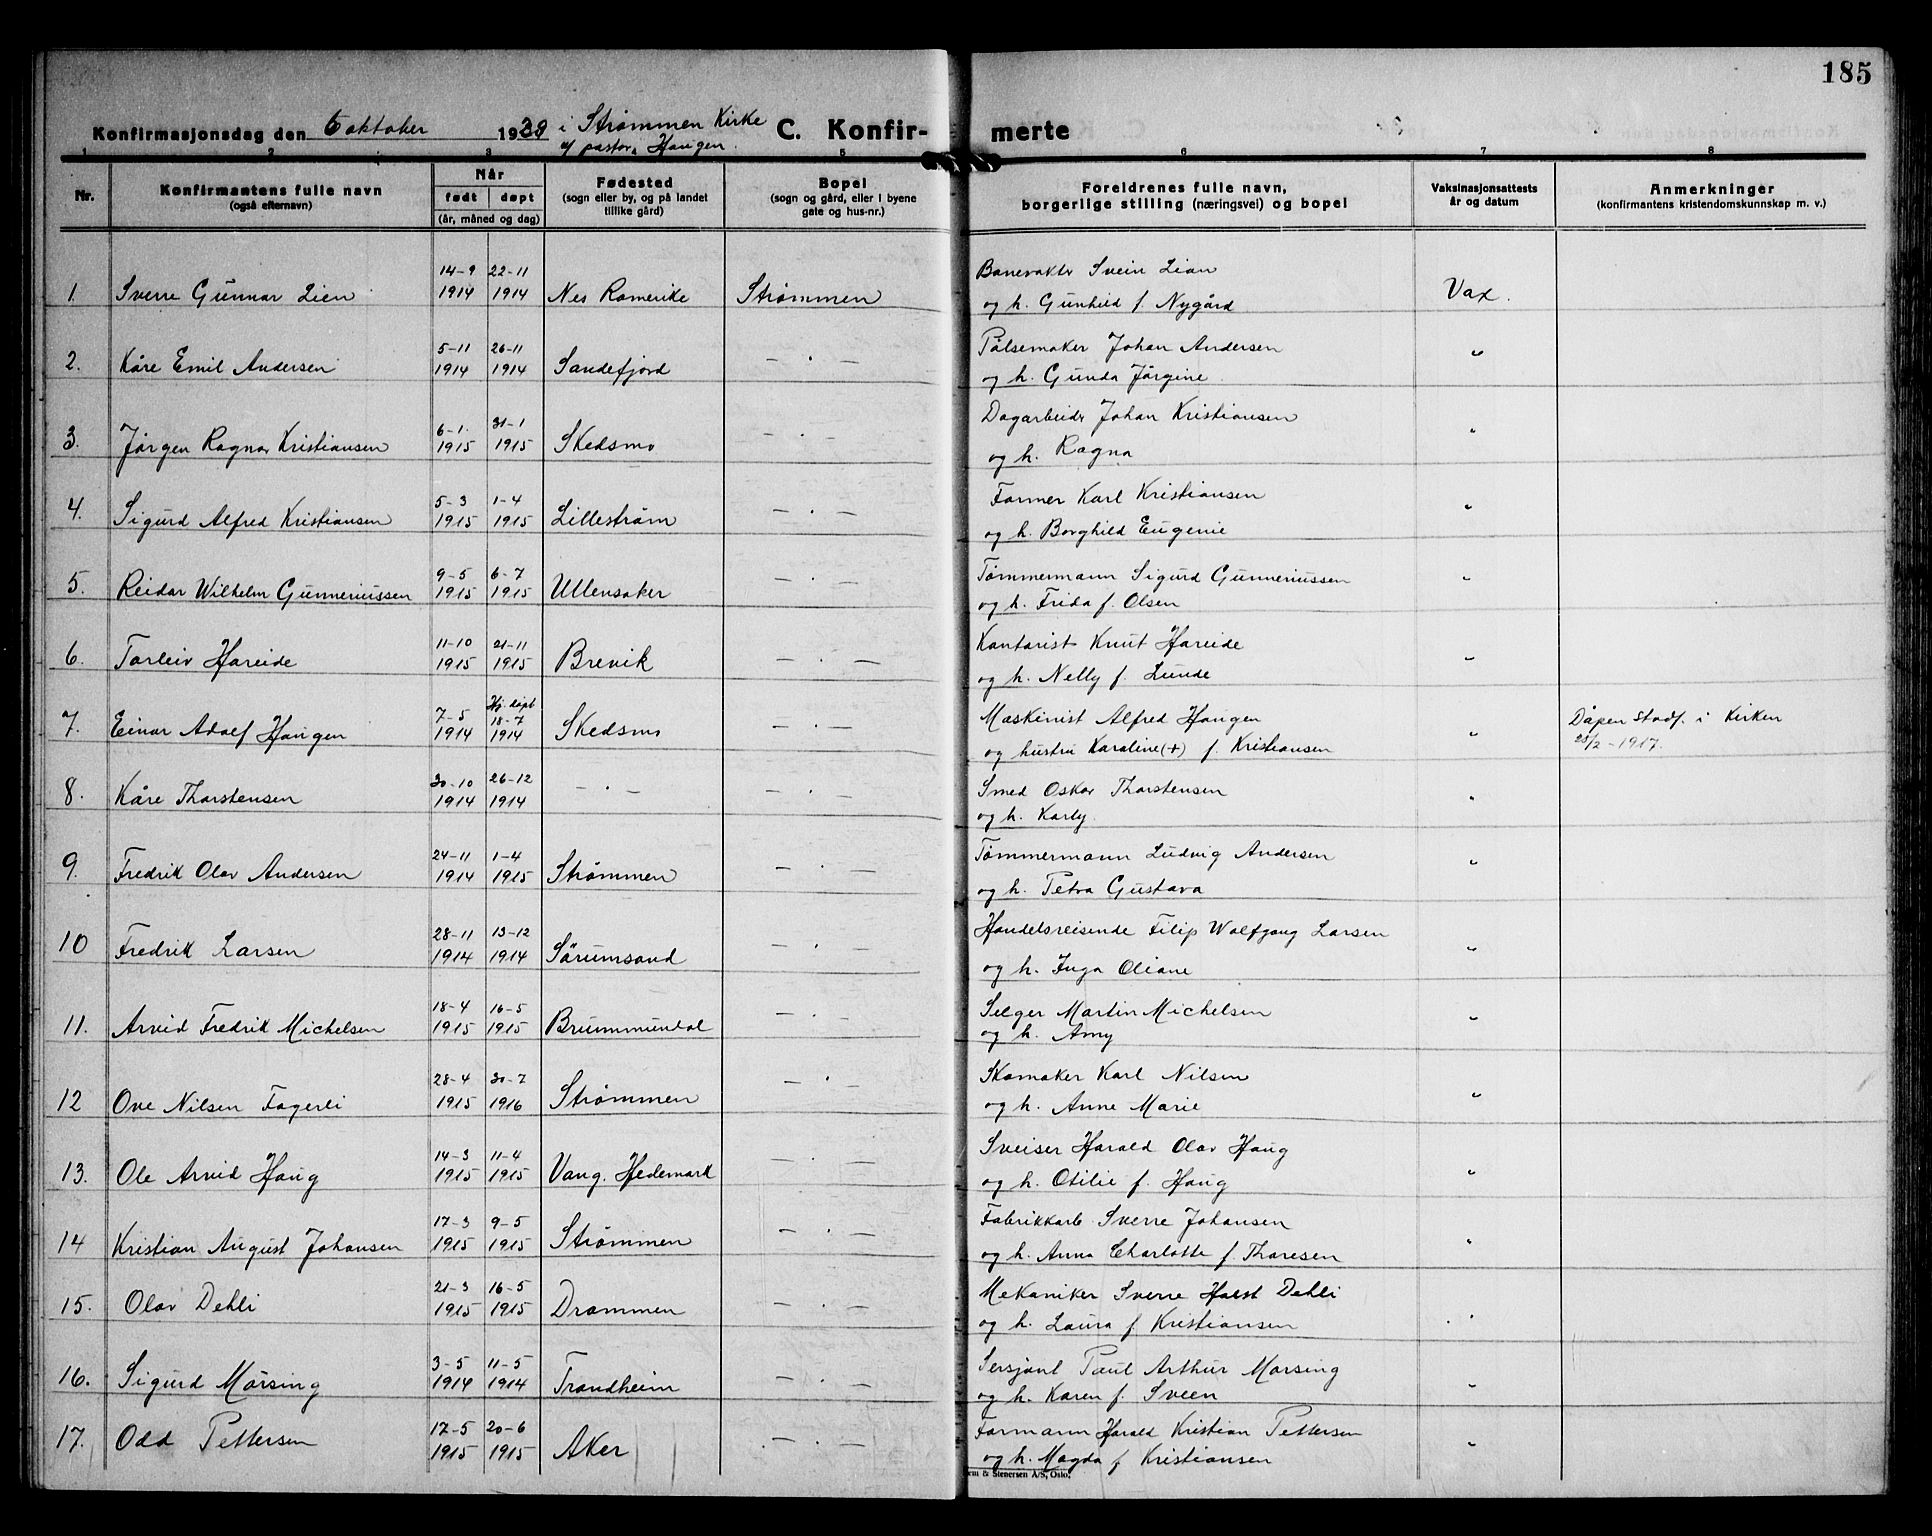 185
Konfirmasjonsdag den oktober 19 i Strømmen Kirke C. Konfir- merte
v/ pastor Haugen.
1 2 3 5 6 7 8
Nr.
Konfirmantens fulle navn
(også efternavn)
Når
født døpt
(år, måned og dag)
Fødested
(sogn eller by, og på landet
tillike gård)
Bopel
(sogn og gård, eller i byene
gate og hus-nr.)
Foreldrenes fulle navn,
borgerlige stilling (næringsvei) og bopel
Vaksinasjonsattests
år og datum
Anmerkninger
(konfirmantens kristendomskunnskap m. v.)
14-9 22-11 Banevokter Svein Lien
1. Sverre Gunnar Lien 1914 1914 Nes Romerike Strømmen og h. Gunhild f. Nygård Vax.
5-11 26-11 Pølsemaker Johan Andersen
2. Kåre Emil Andersen 1914 1914 Sandefjord — . — og h. Gunda Jørgine "
6-1. 31-1 Dagarbeider Johan Kristiansen
3. Jørgen Ragnar Kristiansen 1915 1915 Skedsmo — . — og h. Ragna "
5-3 1-4 Farmer Karl Kristiansen
4. Sigurd Alfred Kristiansen 1915 1915 Lillestrøm — . — og h. Borghild Eugenie "
9-5 6-7 Tømmermann Sigurd Gunneriussen
5. Reidar Wilhelm Gunneriussen 1915 1915 Ullensaker — . — og h. Frida f. Olsen "
11-10 21-11 Kontorist Knut Hareide
6. Torleiv Hareide 1915 1915 Brevik — . — og h. Nelly f. Lunde "
Hj. døpt
7-5 18-7 Maskinist Alfred Haugen Dåpen stadf. i Kirken
7. Einar Adolf Haugen 1914 1914 Skedsmo og hustru Karoline (+) f. Kristiansen " 25/2-1917.
30-10 26-12 Smed Oskar Thorstensen
8. Kåre Thorstensen 1914 1914 — . — — . — og h. Karly. "
24-11 1-4 Tømmermann Ludvig Andersen
9. Fredrik Olav Andersen 1914 1915 Strømmen — . — og h. Petra Gustava "
28-11 13-12 Handelsreisende Filip Wolfgang Larsen
10 Fredrik Larsen 1914 1914 Sørumsand — . — og h. Inga Oliane "
18-4 16-5 Selger Martin Michelsen
11. Arvid Fredrik Michelsen 1915 1915 Brummundal — . — og h. Amy "
28-4 30-7 Skomaker Karl Nilsen
12 Ove Nilsen Fagerli 1915 1916 Strømmen — . — og h. Anne Marie "
14-3 11-4 Sveiser Harald Olav Haug
13. Ole Arvid Haug 1915 1915 Vang. Hedemark — . — og h. Otilie f. Haug "
17-3 9-5 Fabrikkarb. Sverre Johansen
14 Kristian August Johansen 1915 1915 Strømmen — . — og h. Anna Charlotte f. Thoresen "
21-3 16-5 Mekaniker Sverre Holst Dehli
15. Olav Dehli 1915 1915 Drammen — . — og h. Laura f. Kristiansen "
3-5 11-5 Sersjant Paul Arthur Morsing
16. Sigurd Morsing 1914 1914 Trondheim — . — og h. Karen f. Sveen "
17-5 20-6 Formann Harald Kristian Pettersen
17. Odd Pettersen 1915 1915 Aker — . — og h. Magda f Kristiansen "
em & Stenersen A/S, Oslo.